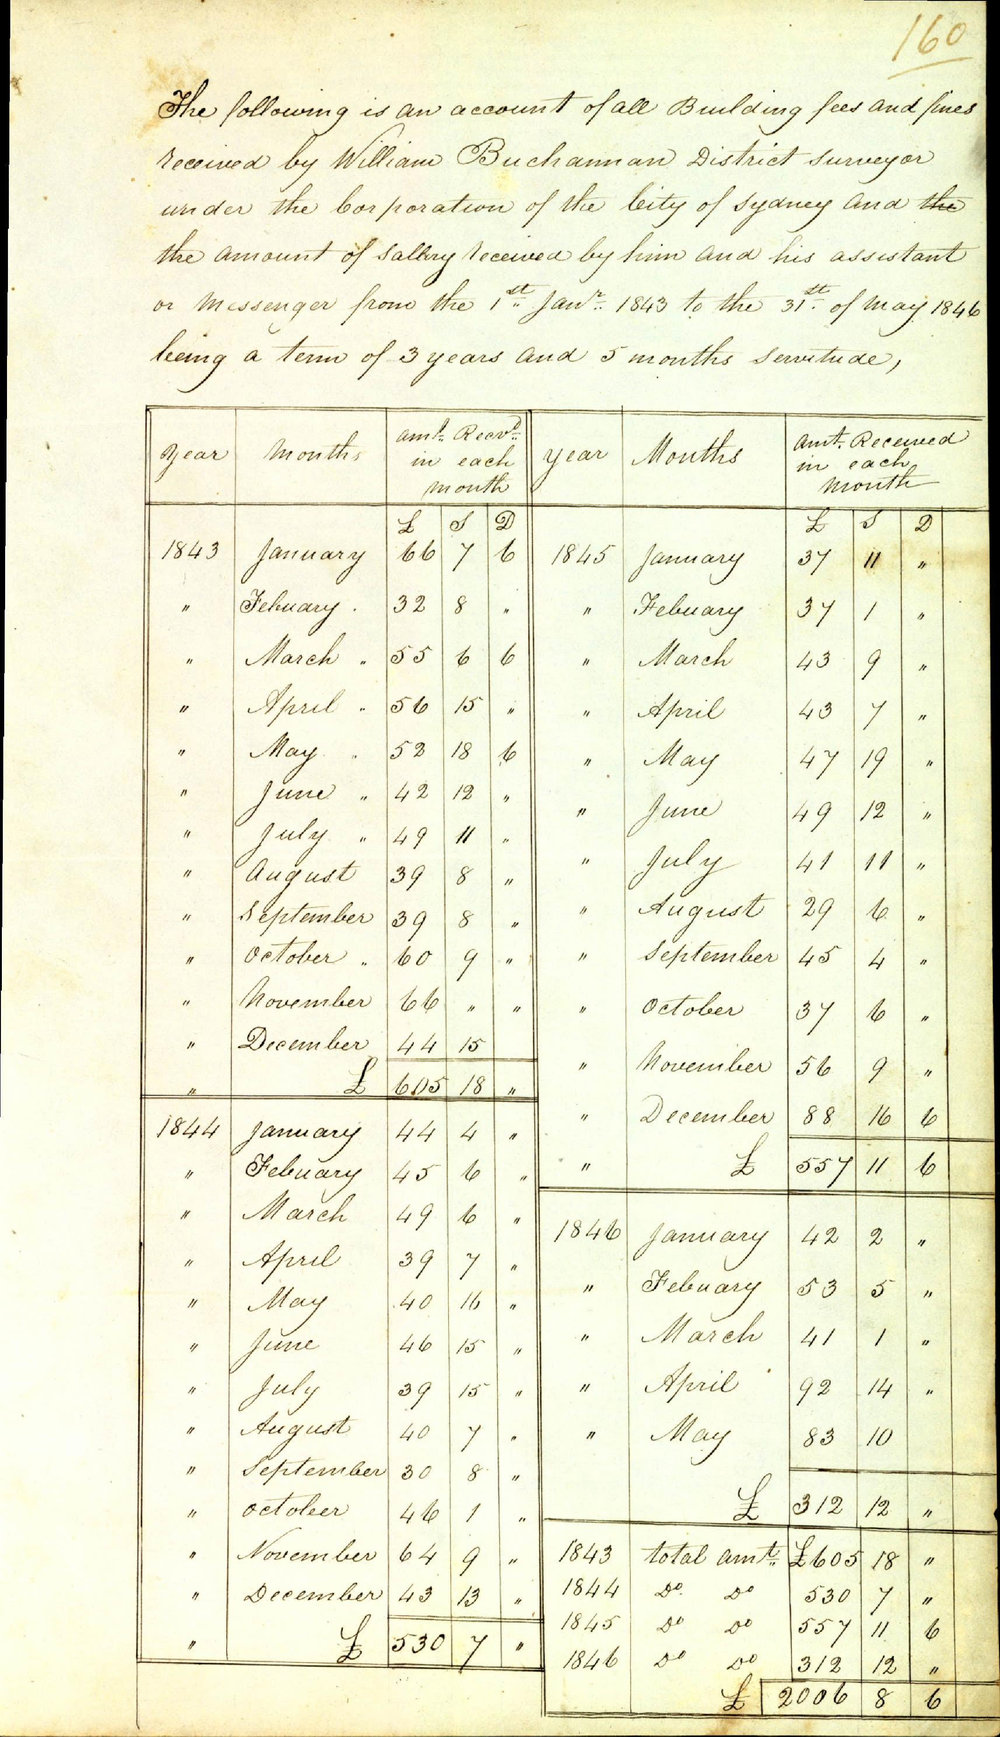 160
The following is an account of all Building fees and fines
received by William Buchannan District surveyor
under the Corporation of the City of Sydney and the
the amount of sallery received by him and his assistant
or messenger from the 1st Janr. 1843 to the 31st of may 1846
being a term of 3 years and 5 months servitude,
Year Months Amt. Recvd. in each month
£ S D
1843 January 66 7 6
" Febuary . 32 8 "
" March " 55 6 6
" April " 56 15 "
" May . 52 18 6
" June " 42 12 "
" July " 49 11 "
" August 39 8 "
" September 39 8 "
" October " 60 9 "
" November 66 " "
" December 44 15
" £ 605 18 "
1844 January 44 4 "
" Febuary 45 6 "
" March 49 6 "
" April 39 7 "
" May 40 16 "
" June 46 15 "
" July 39 15 "
" August 40 7 "
" September 30 8 "
" October 46 1 "
" November 64 9 "
" December 43 13 "
" £ 530 7 "
year Months Amt. Received in each month
£ S D
1845 January 37 11 "
" Febuary 37 1 "
" March 43 9 "
" April 43 7 "
" May 47 19 "
" June 49 12 "
" July 41 11 "
" August 29 6 "
" September 45 4 "
" October 37 6 "
" November 56 9 "
" December 88 16 6
" £ 557 11 6
1846 January 42 2 "
" Febuary 53 5 "
" March 41 1 "
" April 92 14 "
" May 83 10
£ 312 12 "
1843 total amt. £605 18 "
1844 Do Do 530 7 "
1845 Do Do 557 11 6
1846 Do Do 312 12 "
£ 2006 8 6